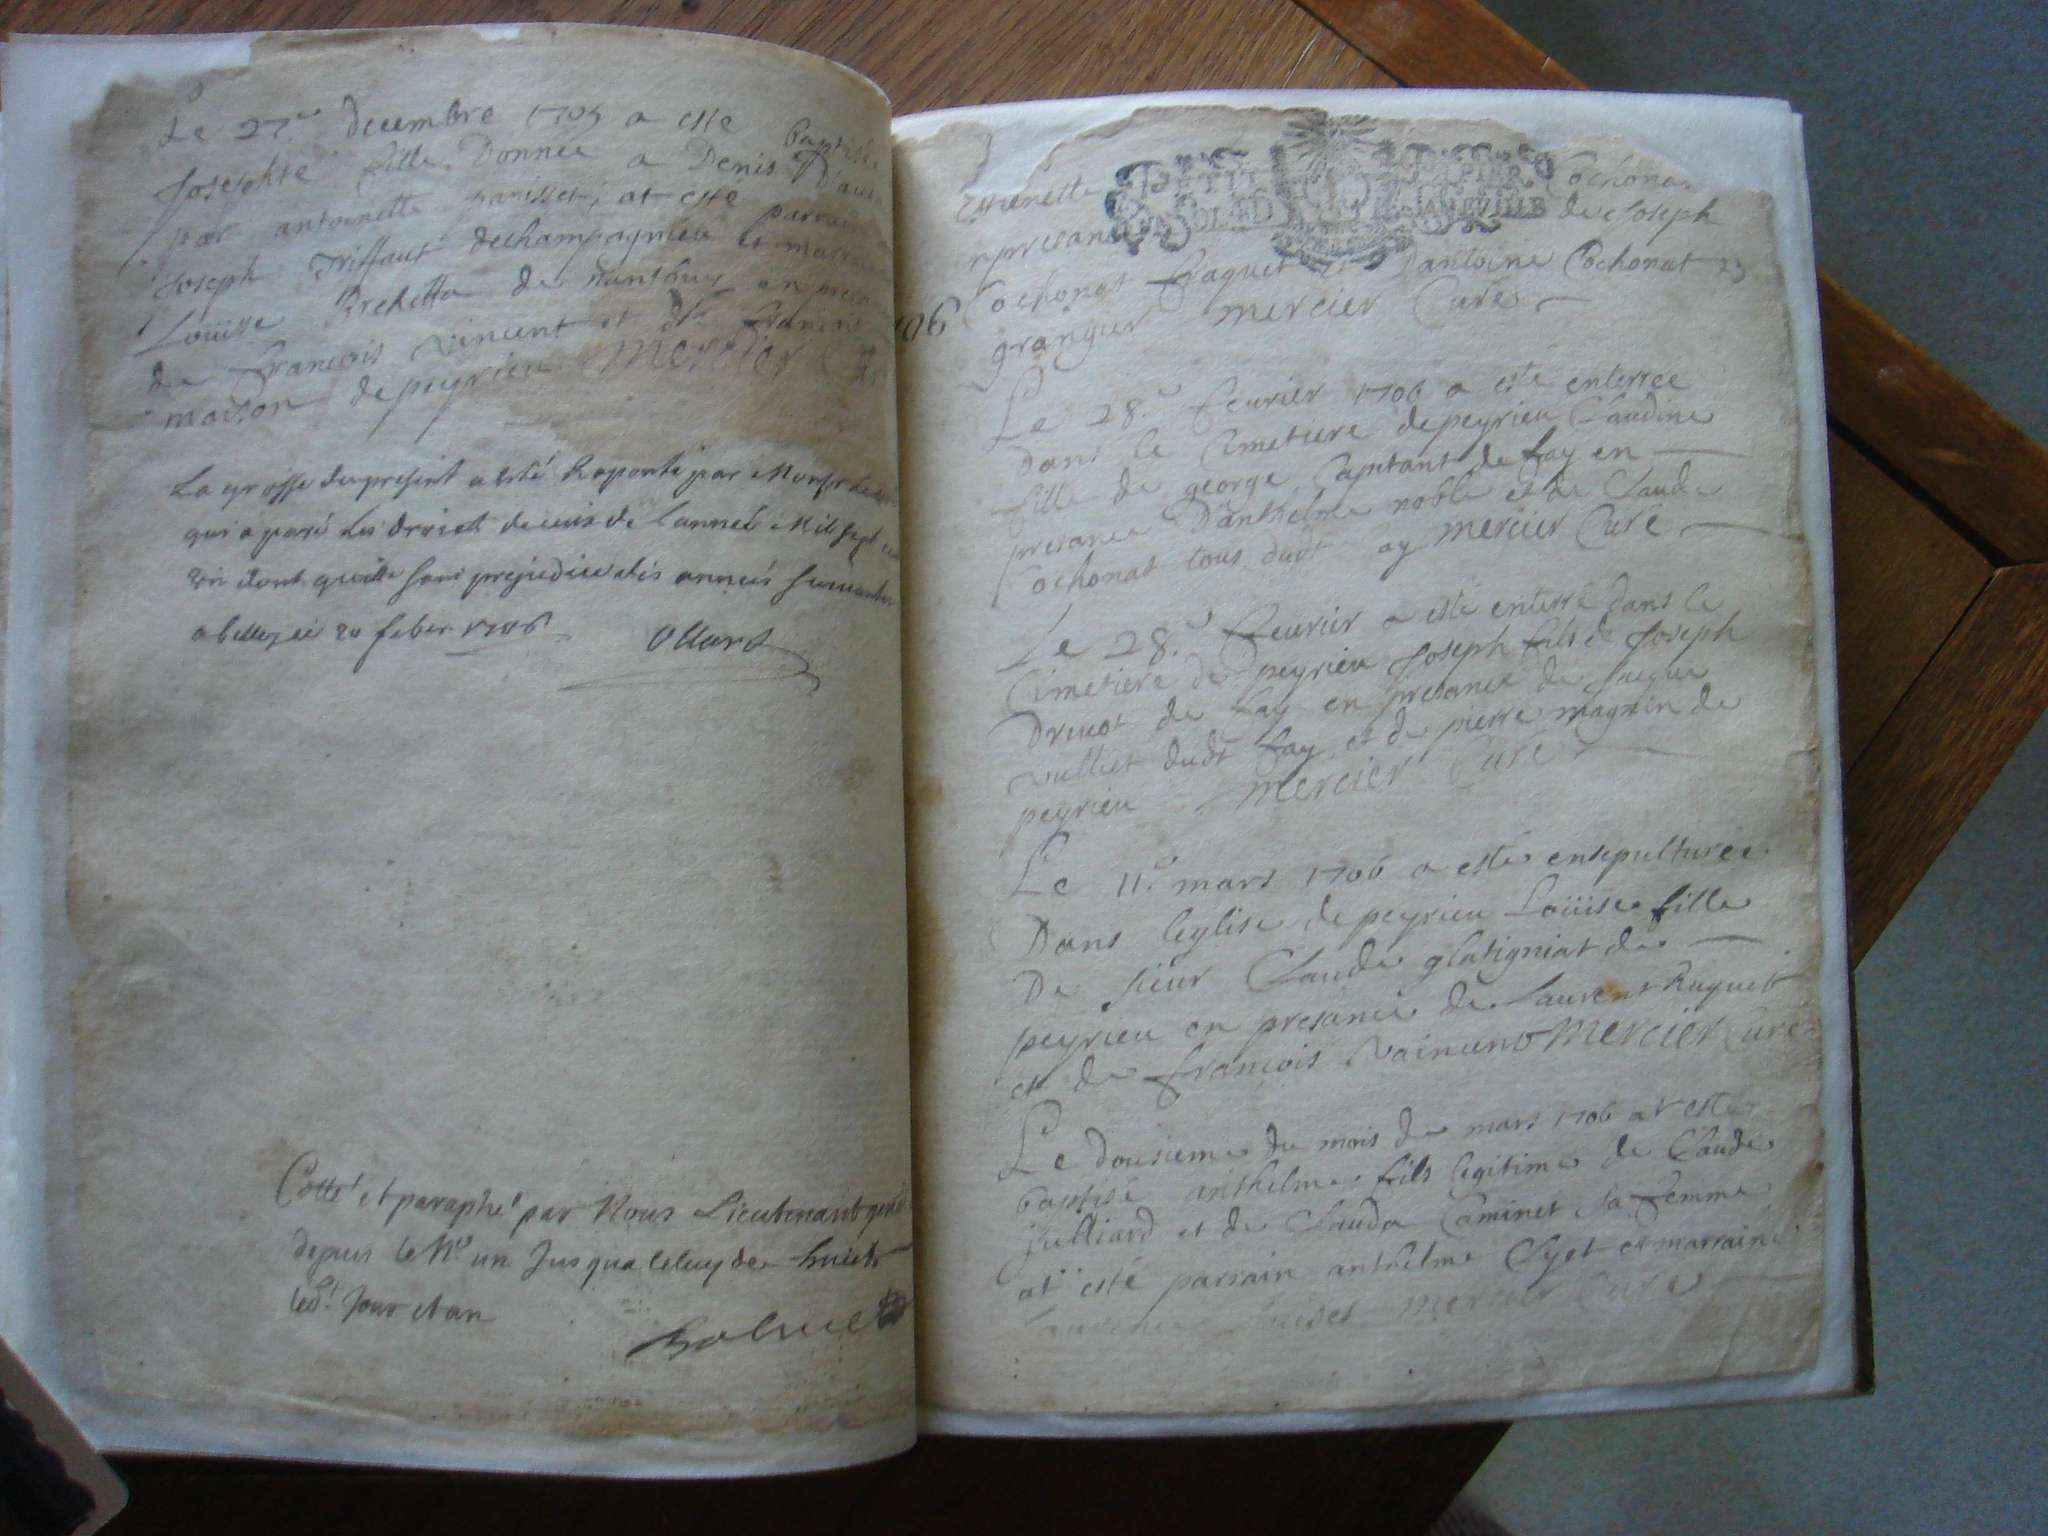 Le 27e decembre 1705 a esté baptisée
Josephte fille Donnée a Denis
par antoinette parisset, at esté parrain
Joseph Triffaut dechampagnieu et marraine
Loüise Brehetta de nanthuy en
de François Vincent et de
maison de peyrieu Mercier
La grosse du present a esté Raporté par Monsr
qui a paié Les droict deceuis de Lannée Mil sept
dont quitte sans prejudice des années suivantes
a belley ce 20 feber 1706 Ollard
Cotté et paraphé par Nous Lieutenant
depuis le No un Jusqua celuy de huict
led. Jour et an
Estienette Cochonat
PETIT PAPIER
presance de Joseph
Cochonat fraquet et dantoine Cochonat 23
106
grangier mercier Curé
Le 28e feurier 1706 a esté enterrée
Dans le Cimetiere depeyrieu Claudine
fille de george Capitant de fay en
presance Danthelme noble et de Claude
Cochonat tous dudt ay mercier Curé
Le 28e feurier a esté enterré dans le
Cimetiere de peyrieu Joseph fils de Joseph
Druot de fay en presance de Jacque
vulliet dudt fay et de pierre magnin de
peyrieu mercier Curé
Le 11e mars 1706 a esté ensepulturée
Dans leglise de peyrieu Loüise fille
De sieur Claude glatigniat de
peyrieu en presance de Laurent Ruquet
et de françois Mercier Curé
Le dousieme du mois de mars 1706 at esté
baptisé anthelme fils legitime de Claude
julliard et de Clauda Caminet sa femme
at esté parrain anthelme Cyot et marraine
mercier Curé